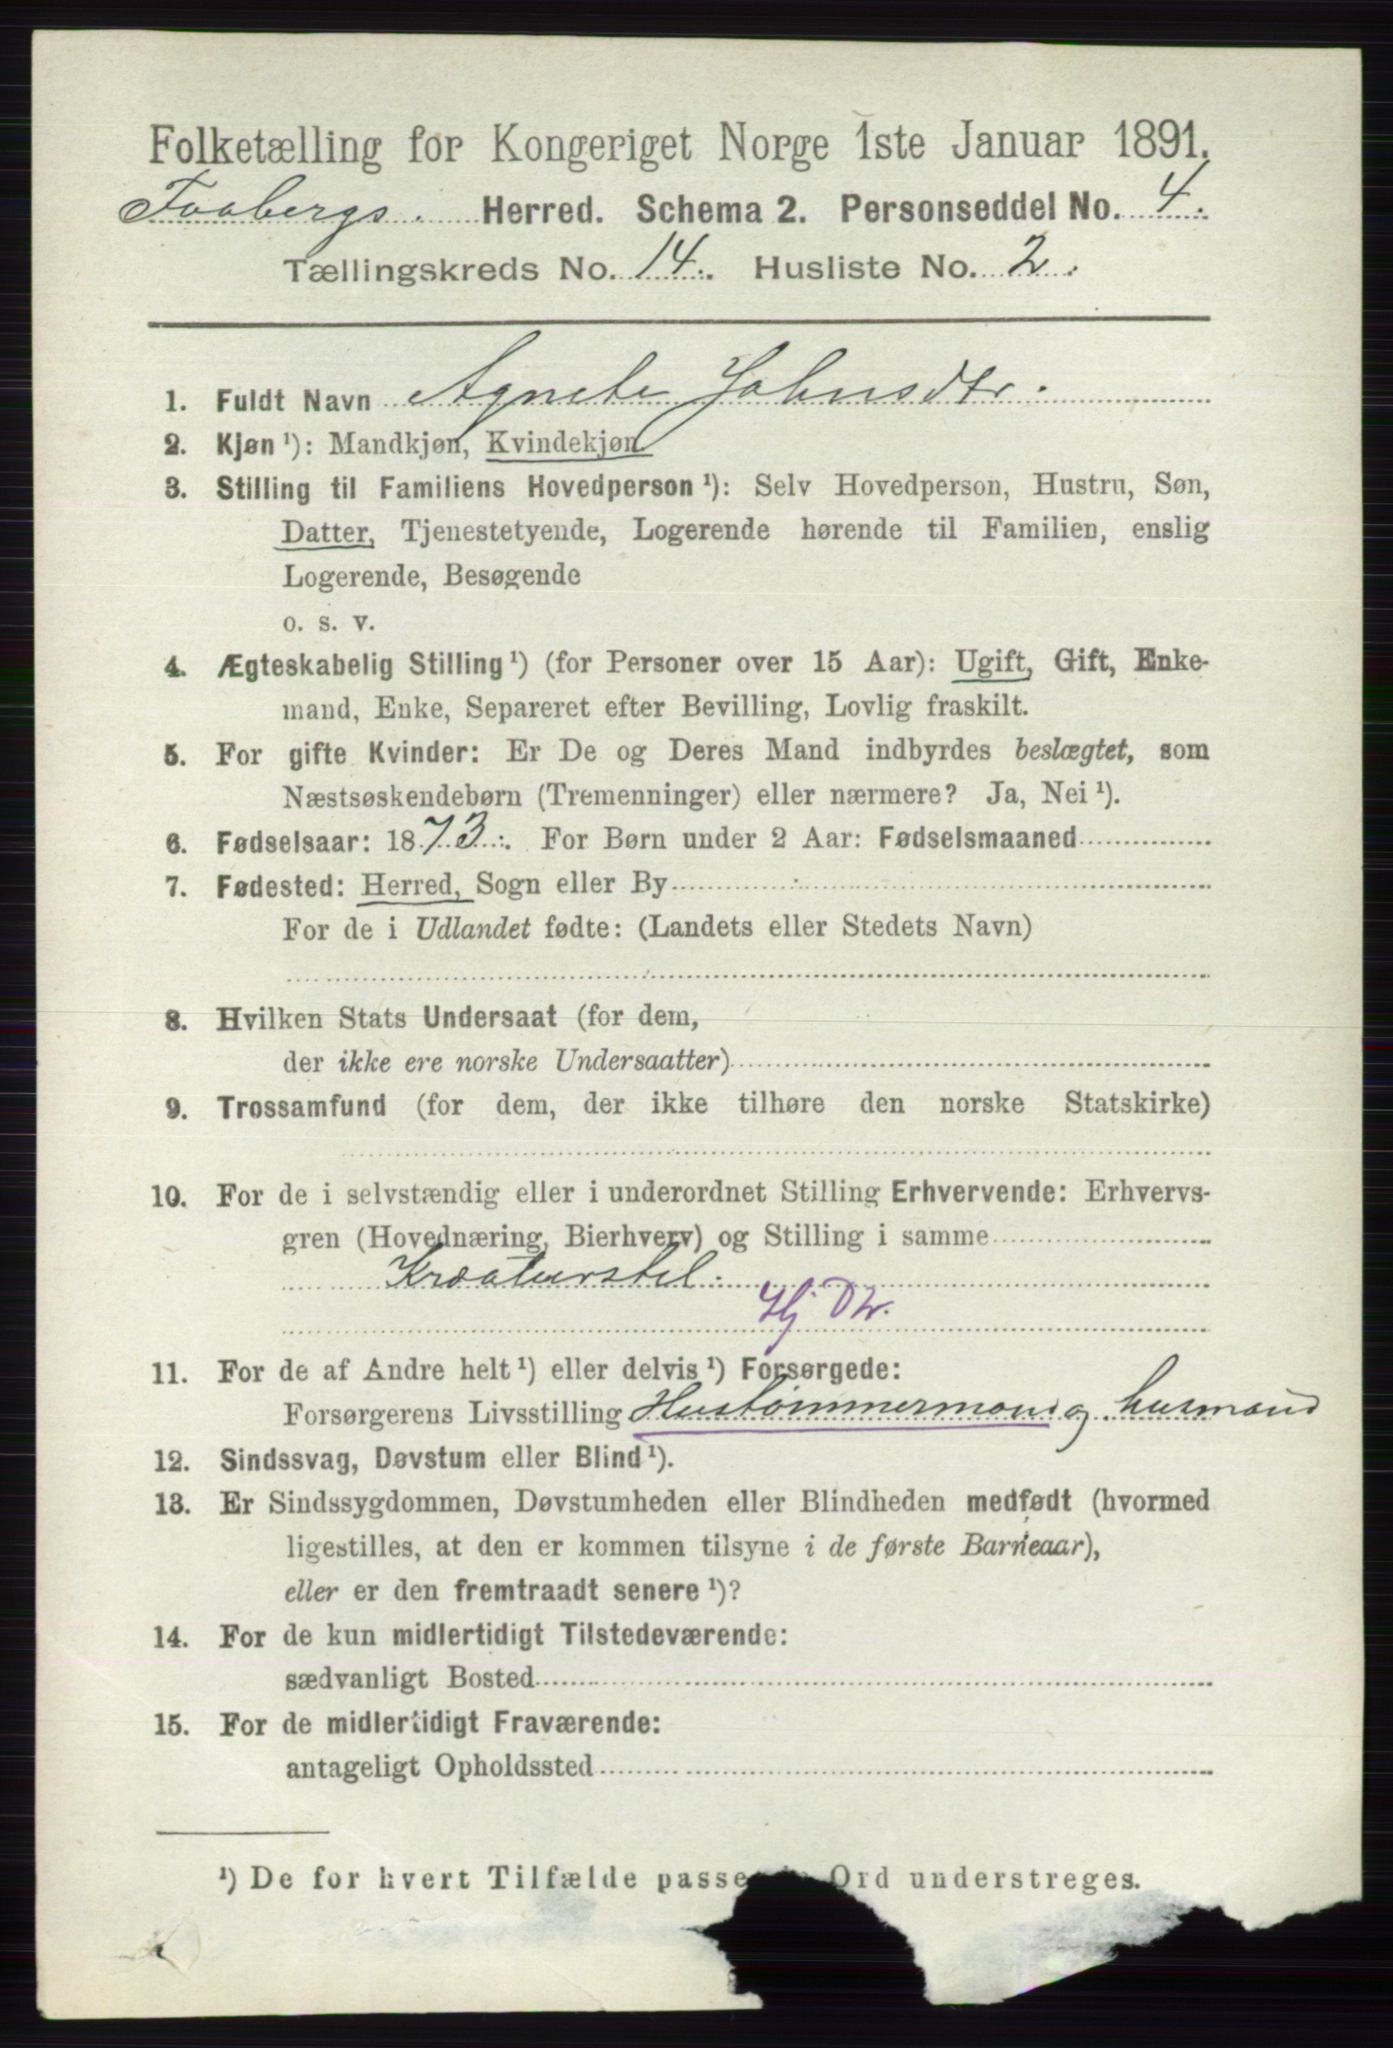 Folketælling for Kongeriget Norge 1ste Januar 1891.
Faabergs. Herred. Schema 2. Personseddel No. 4.
Tællingskreds No. 14. Husliste No. 2.
1. Fuldt Navn Agnete Johnsdtr.
2. Kjøn ¹): Mandkjøn, Kvindekjøn.
3. Stilling til Familiens Hovedperson ¹): Selv Hovedperson, Hustru, Søn,
Datter, Tjenestetyende, Logerende hørende til Familien, enslig
Logerende, Besøgende
o. s. v.
4. Ægteskabelig Stilling ¹) (for Personer over 15 Aar): Ugift, Gift, Enke-
mand, Enke, Separeret efter Bevilling, Lovlig fraskilt.
5. For gifte Kvinder: Er De og Deres Mand indbyrdes beslægtet, som
Næstsøskendebørn (Tremenninger) eller nærmere? Ja, Nei ¹).
6. Fødselsaar: 1873. For Børn under 2 Aar: Fødselsmaaned
7. Fødested: Herred, Sogn eller By
For de i Udlandet fødte: (Landets eller Stedets Navn)
8. Hvilken Stats Undersaat (for dem,
der ikke ere norske Undersaatter)
9. Trossamfund (for dem, der ikke tilhøre den norske Statskirke)
10. For de i selvstændig eller i underordnet Stilling Erhvervende: Erhvervs-
gren (Hovednæring, Bierhverv) og Stilling i samme
Kreaturstel.
Hj Dtr.
11. For de af Andre helt ¹) eller delvis ¹) Forsørgede:
Forsørgerens Livsstilling Hustømmermand og husmand
12. Sindssvag, Døvstum eller Blind ¹).
13. Er Sindssygdommen, Døvstumheden eller Blindheden medfødt (hvormed
ligestilles, at den er kommen tilsyne i de første Barneaar),
eller er den fremtraadt senere ¹)?
14. For de kun midlertidigt Tilstedeværende:
sædvanligt Bosted
15. For de midlertidigt Fraværende:
antageligt Opholdssted
¹) De for hvert Tilfælde passende Ord understreges.